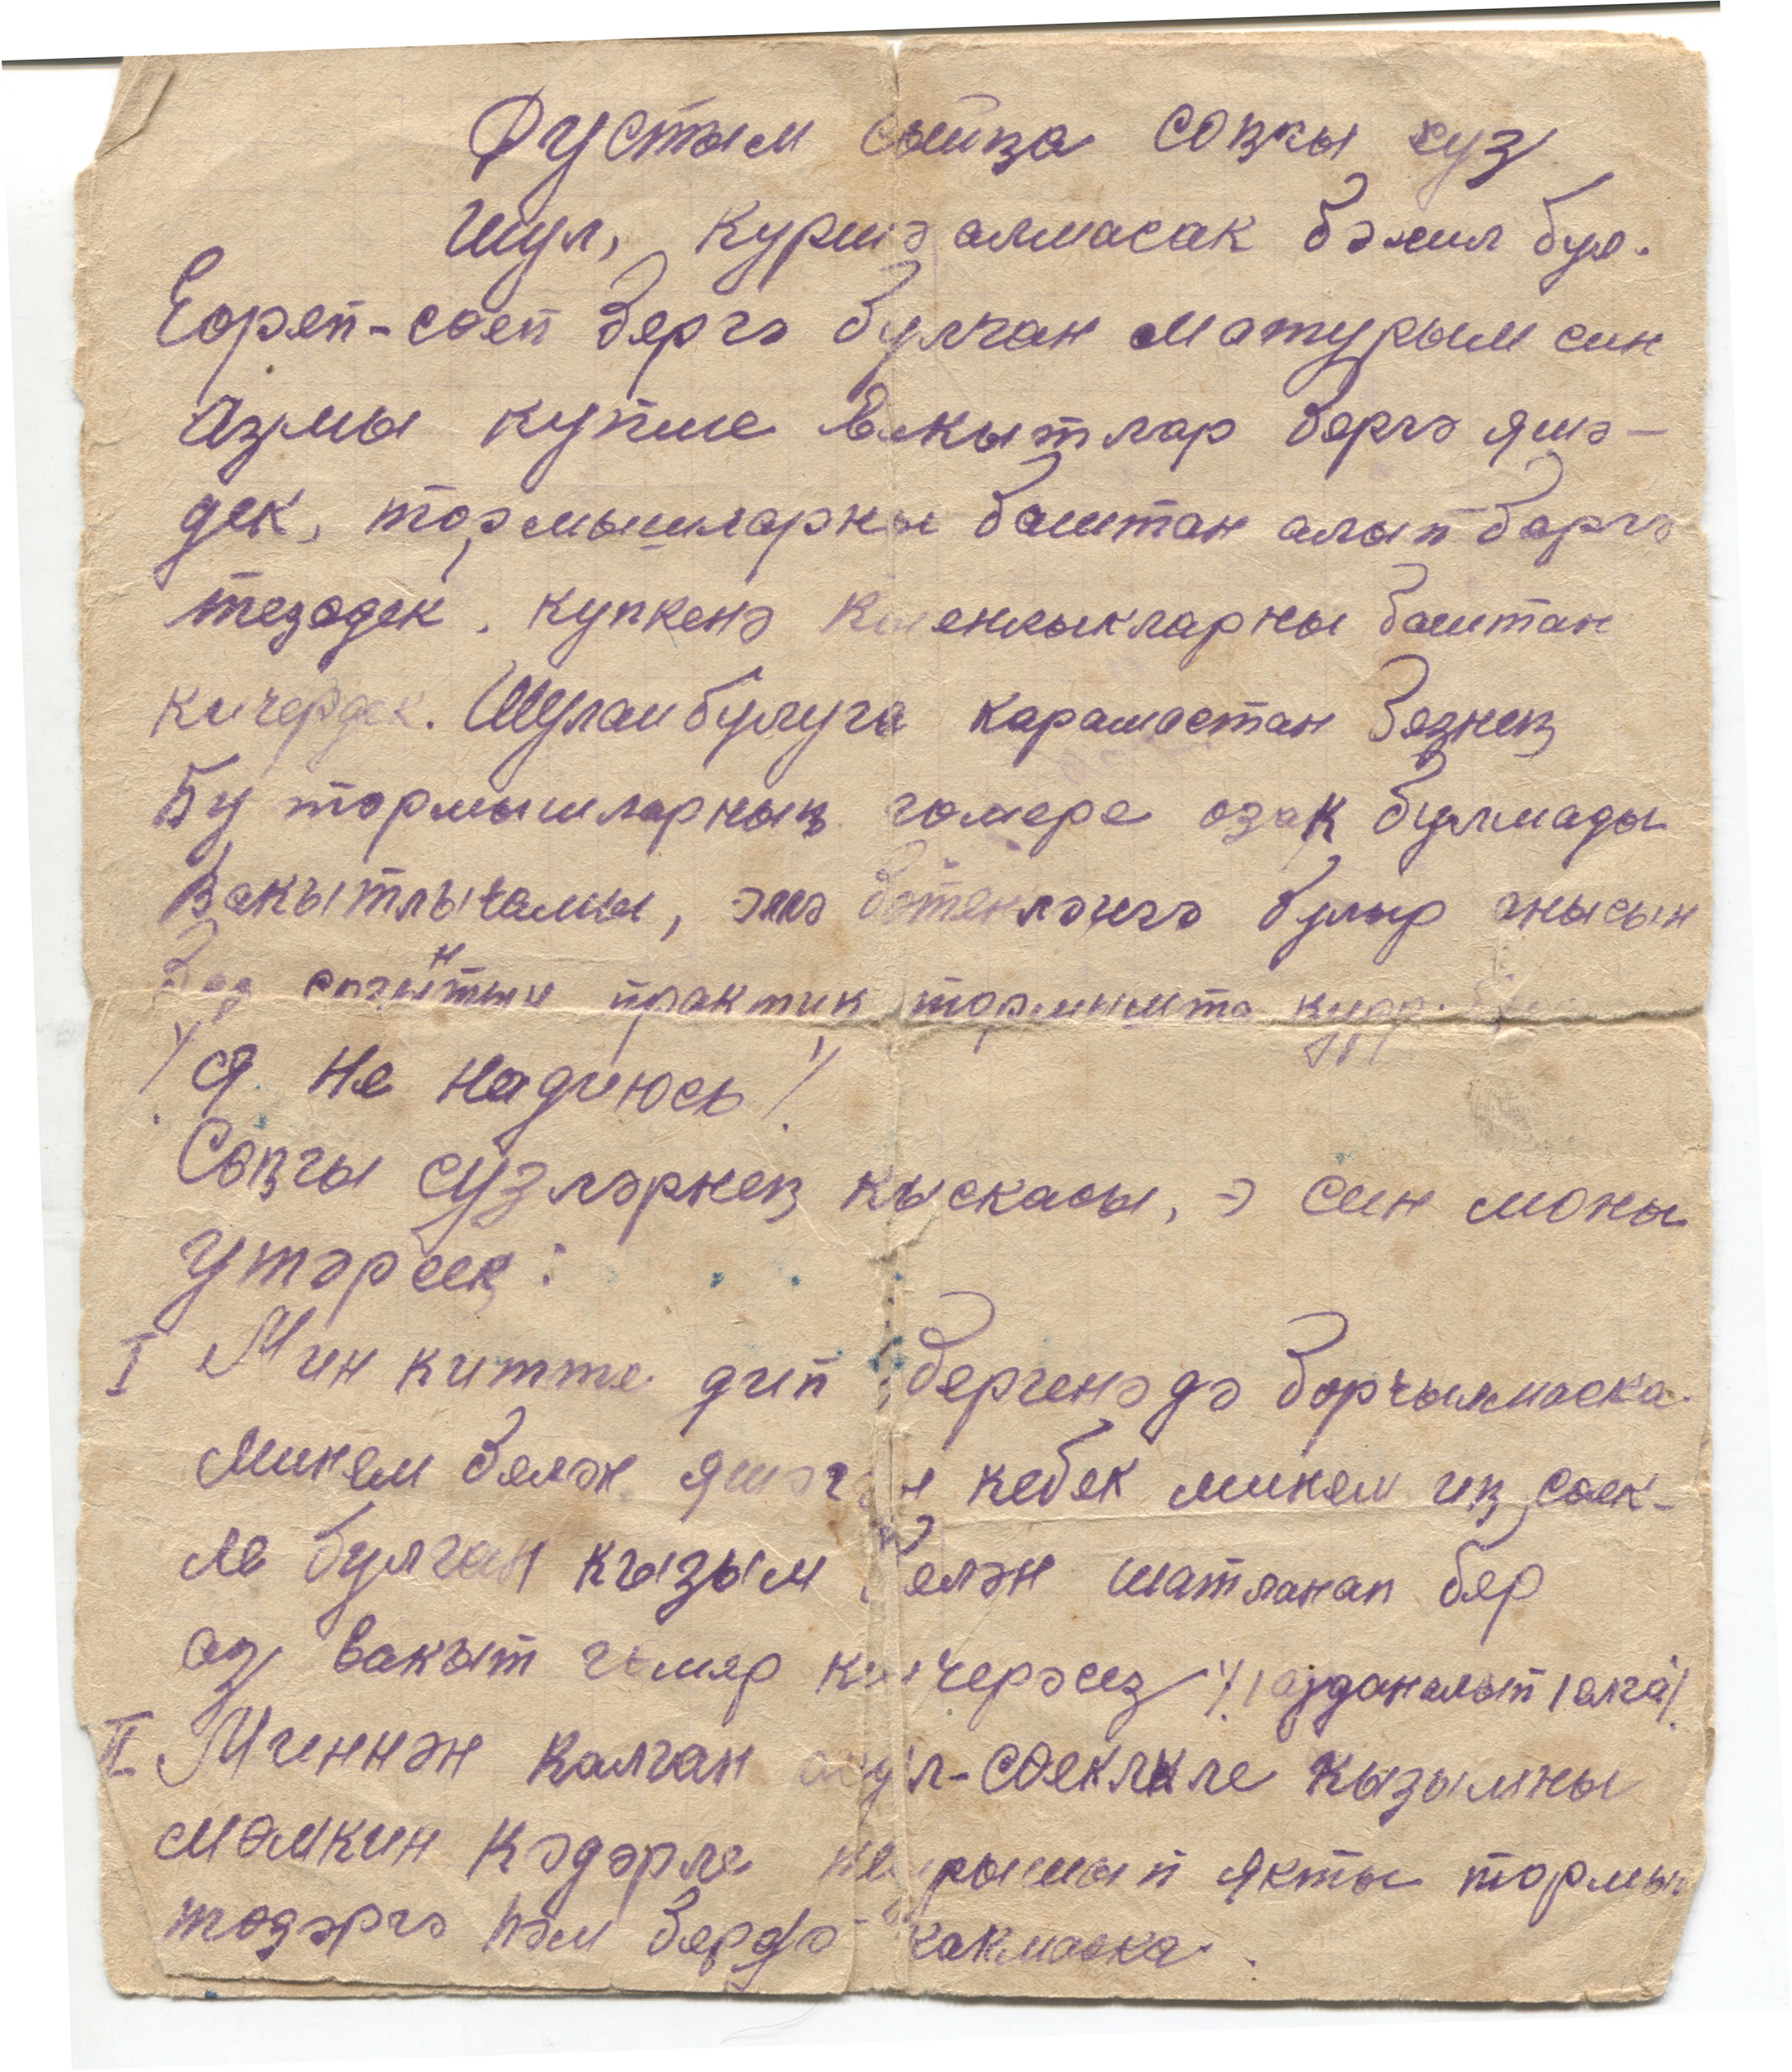 Дустым сыңа соңкы сүз
шул, куриша алмасак бәхил бул.
Еореп-соеп бергә булган матурым син
Азмы купме вакытлар бергә яшә-
дек, тормышларны баштан алып бергә
тезедек, купкенә кыенлыкларны баштан
кичердек. Шулай булуга карамастан безнең
Бу тормышларның гомере озак булмады
Вакытлычамы, әллә бөтенләнгә булыр анысын
без соңынтын практик тормышта күрер
/Я не надиюсь/
Соңгы сүзләрнең кыскасы, э син моны
үтәрсең:
I Мин китте дип бергенәдә борчылмаска
минем белән яшәгән кебек минем иң сөек-
ле булган кызым белән шатланап бер
аз вакыт гомер кичерәсез
II Миннән калган сөекле кызымны
мөмкин кәдәрле тырышып якты тормыш
төзәргә һәм бердә какмаска.